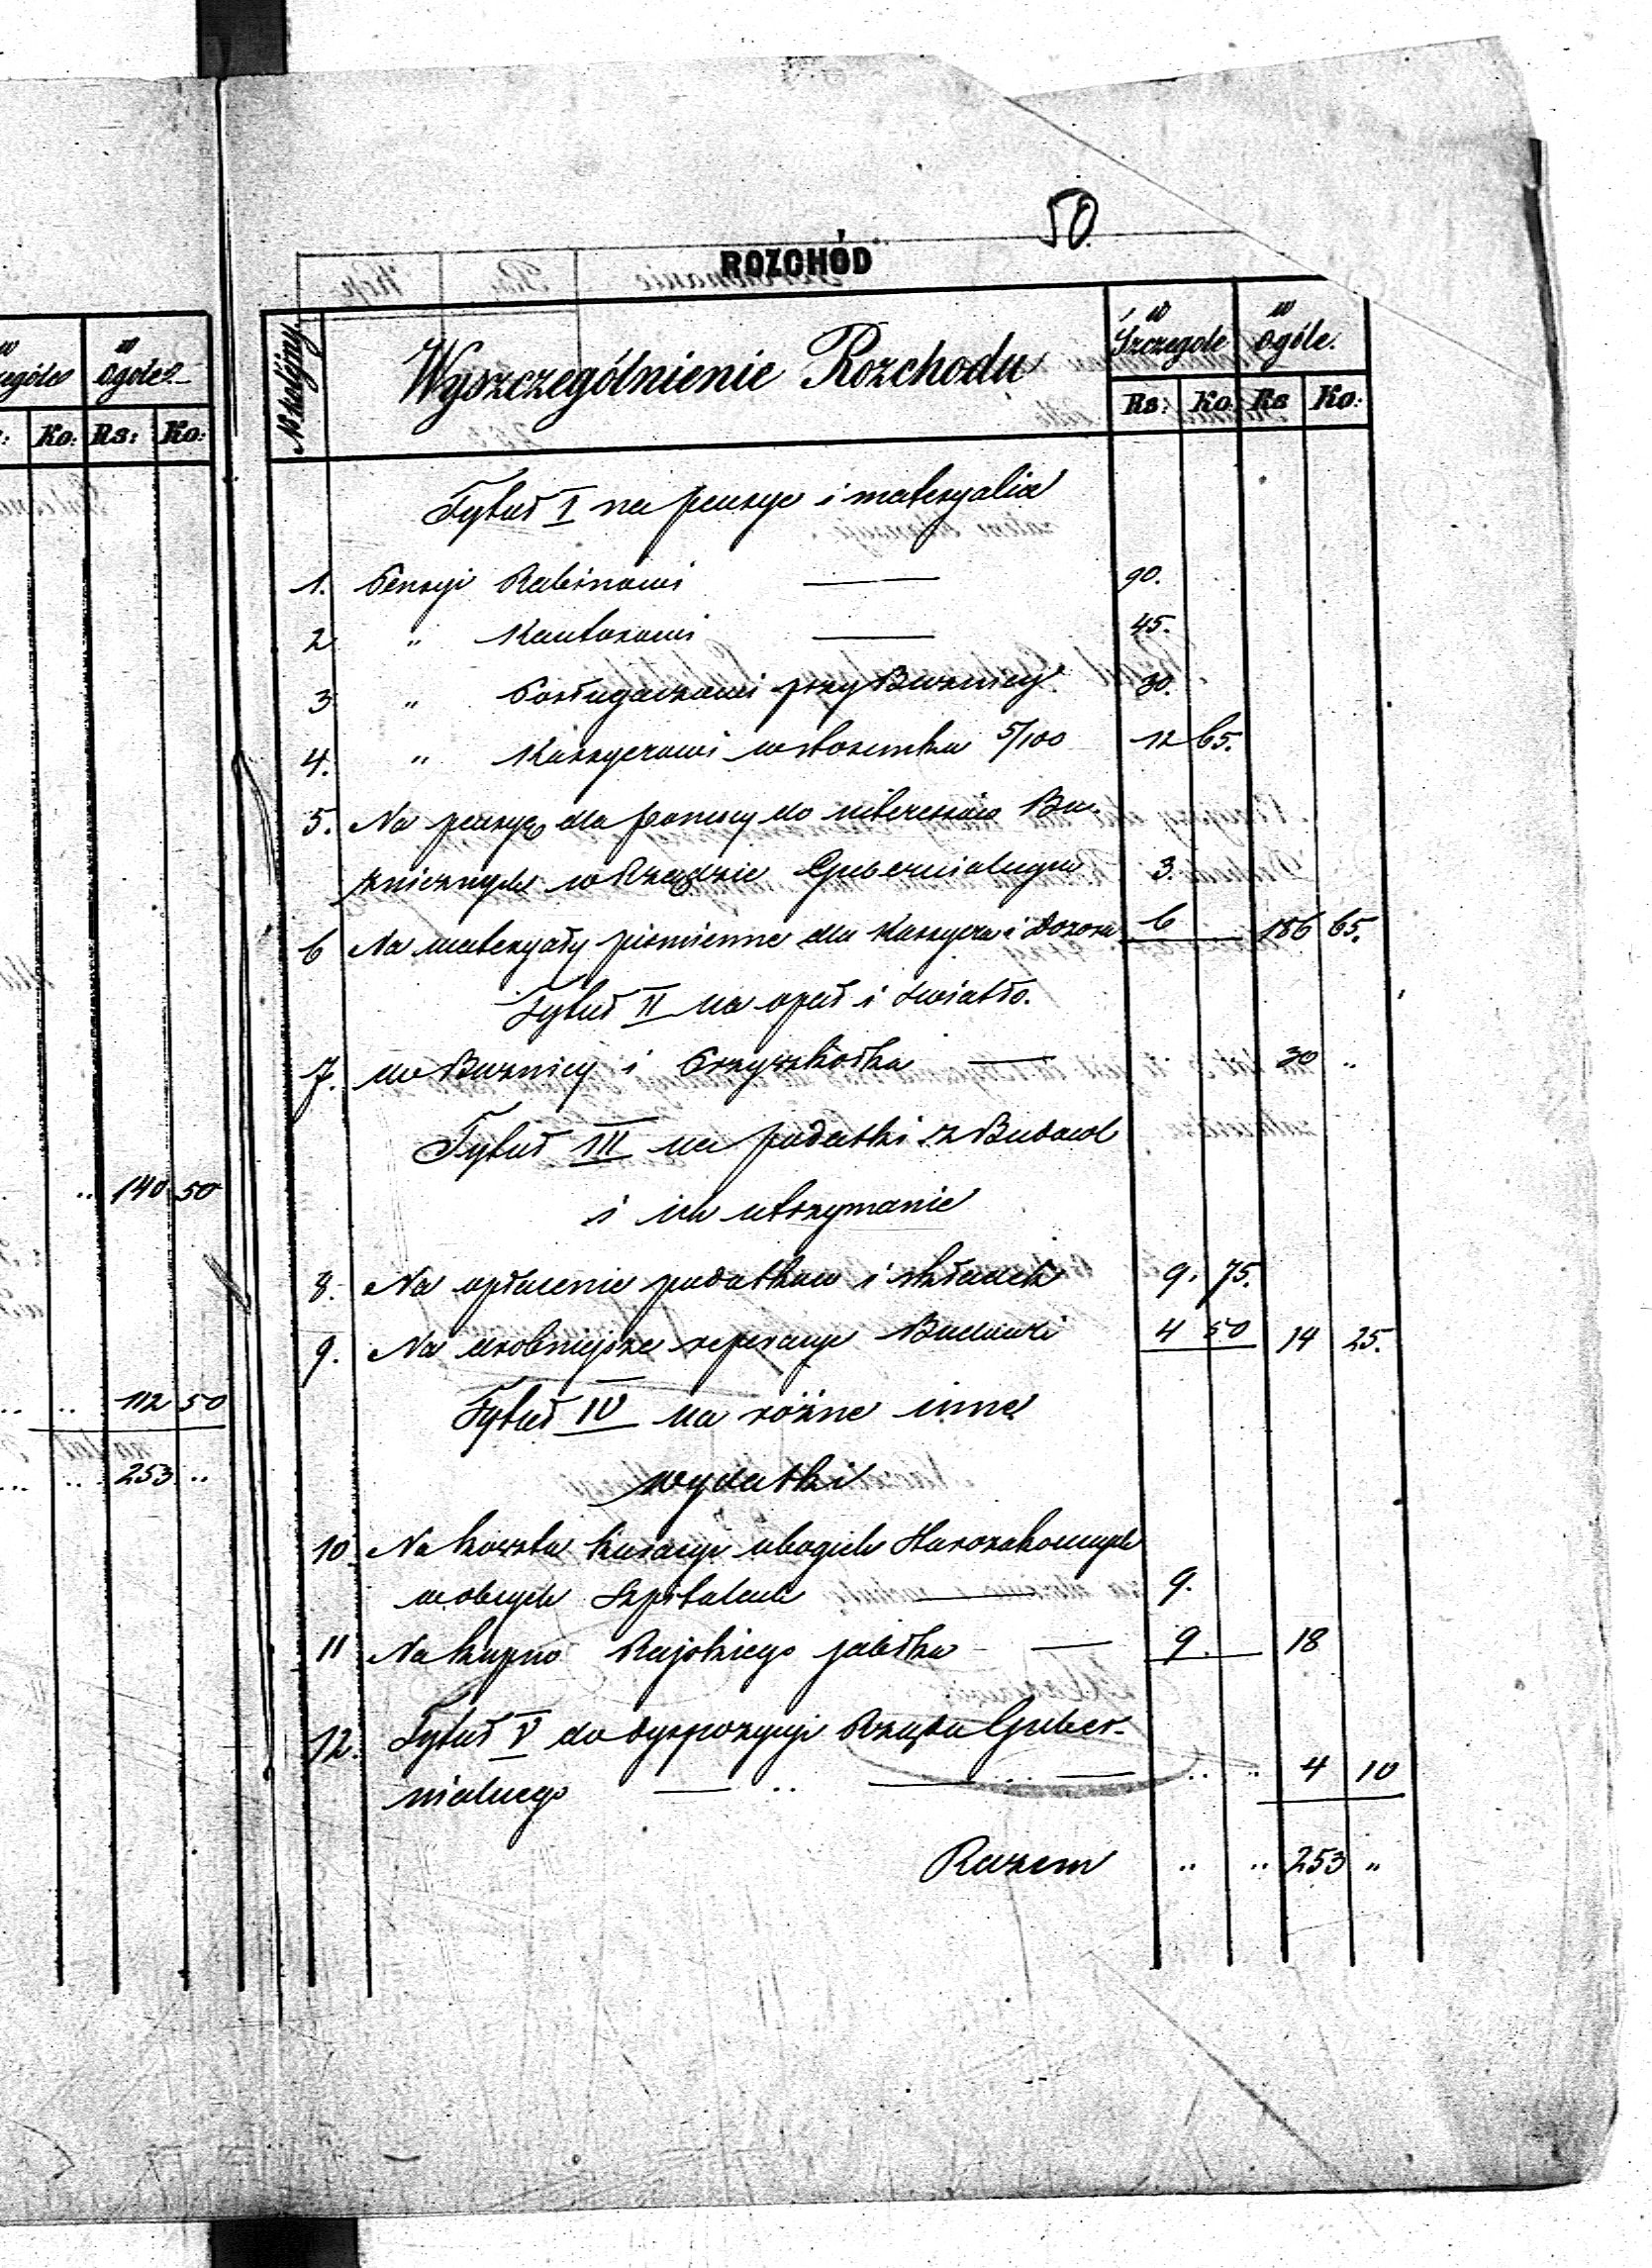 50
ROZCHÓD
w ogóle
Ko: Rs: Ko:
140 50
112 50
253 "
No kolejny
Wyszczególnienie Rozchodu
w Szczegole
w ogóle.
Rs: Ko. Rs Ko:
Tytuł I na pensye i materyalia
1. Pensyi Rabinowi — 90.
2 " Kantorowi — 45.
3 " Posługaczowi przy Buznicy 30.
4. " Kassyerowi w stosunku 5/100 12 65.
5. Na pensyę dla pomocy do interessów Bu-
znicznych w Rządzie Gubernialnym 3.
6 Na materyały piśmienne dla Kassyera i Dozoru 6 186 65.
Tytuł II na opał i światło.
7. w Buznicy i Przyszkołku — 30 "
Tytuł III na podatki z Budowl
i ich utrzymanie
8. Na opłacenie podatków i składek 9. 75.
9. Na drobniejsze reperacye Budowli 4 50 14 25.
Tytuł IV na różne inne
wydatki
10 Na koszta kuracyi ubogich Starozakonnych
w obcych Szpitalach — 9.
11 Na kupno Rajskiego jabłka — 9. 18
12. Tytuł V do dyspozycyi Rządu Guber-
nialnego — " — " — " " 4 10
Razem " " 253 "